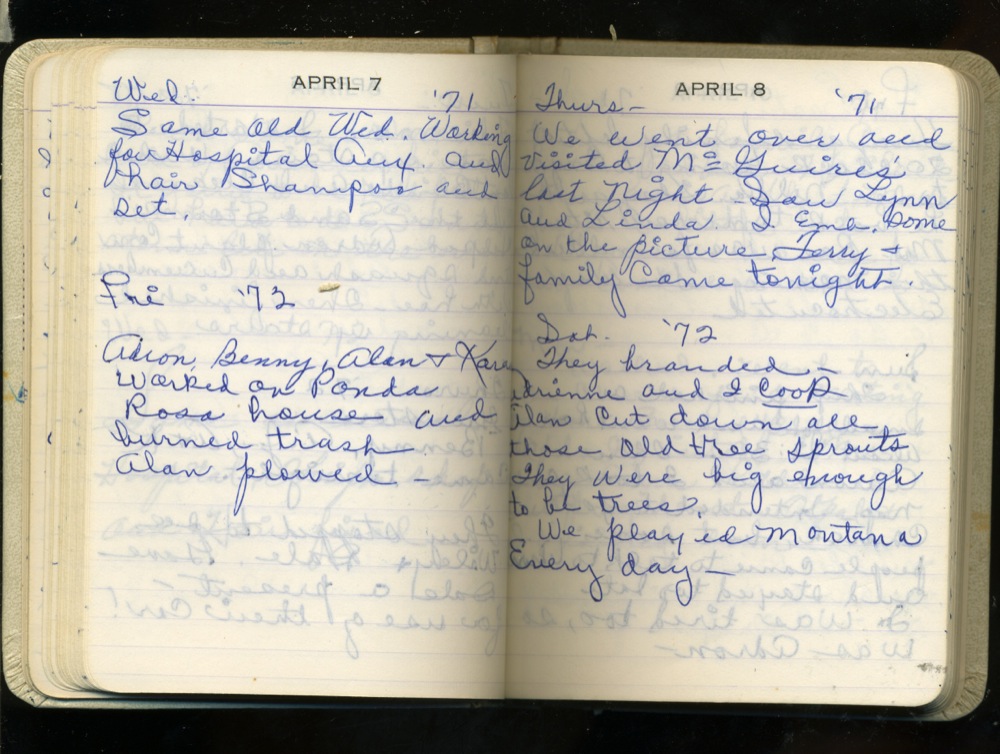 APRIL 7
Wed. '71
Same old Wed. Working
for Hospital Aux. and
hair Shampoo and
set.
Fri '72
Adron, Benny, Alan + Karen
worked on Ponda
Rosa house and
burned trash
Alan plowed -
APRIL 8
Thurs- '71
We went over and
visited Mc Guires'
last night - Saw Lynn
and Linda. I Emb. some
on the picture Terry +
family Came tonight.
Sat. '72
They branded -
Adrienne and I cook
Alan Cut down all
those old tree sprouts
They were big enough
to be trees.
We played Montana
Every day -